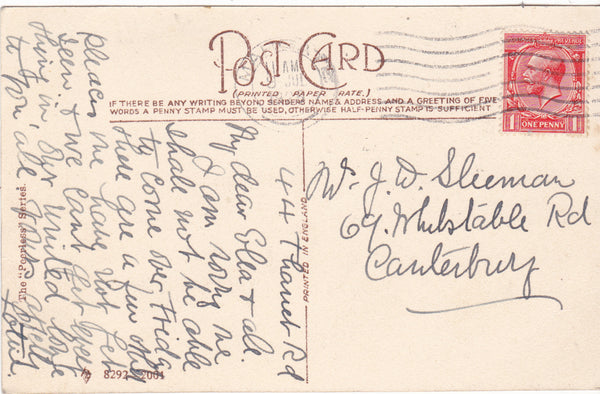 POST CARD
(PRINTED PAPER RATE.)
IF THERE BE ANY WRITING BEYOND SENDERS NAME & ADDRESS AND A GREETING OF FIVE
WORDS A PENNY STAMP MUST BE USED, OTHERWISE HALF-PENNY STAMP IS SUFFICIENT
ONE PENNY
44 Thanet Rd
My dear Ella & all
I am sorry we
shall not be able
to come over Friday
there are a few other
places we have not yet
seen, & we cant get every
thing in. Our united love
to you all. Yours affect
Mr. J. W. Sleeman
69. Whitstable Rd
Canterbury
PRINTED IN ENGLAND
The "Peerless" Series.
8292-2001